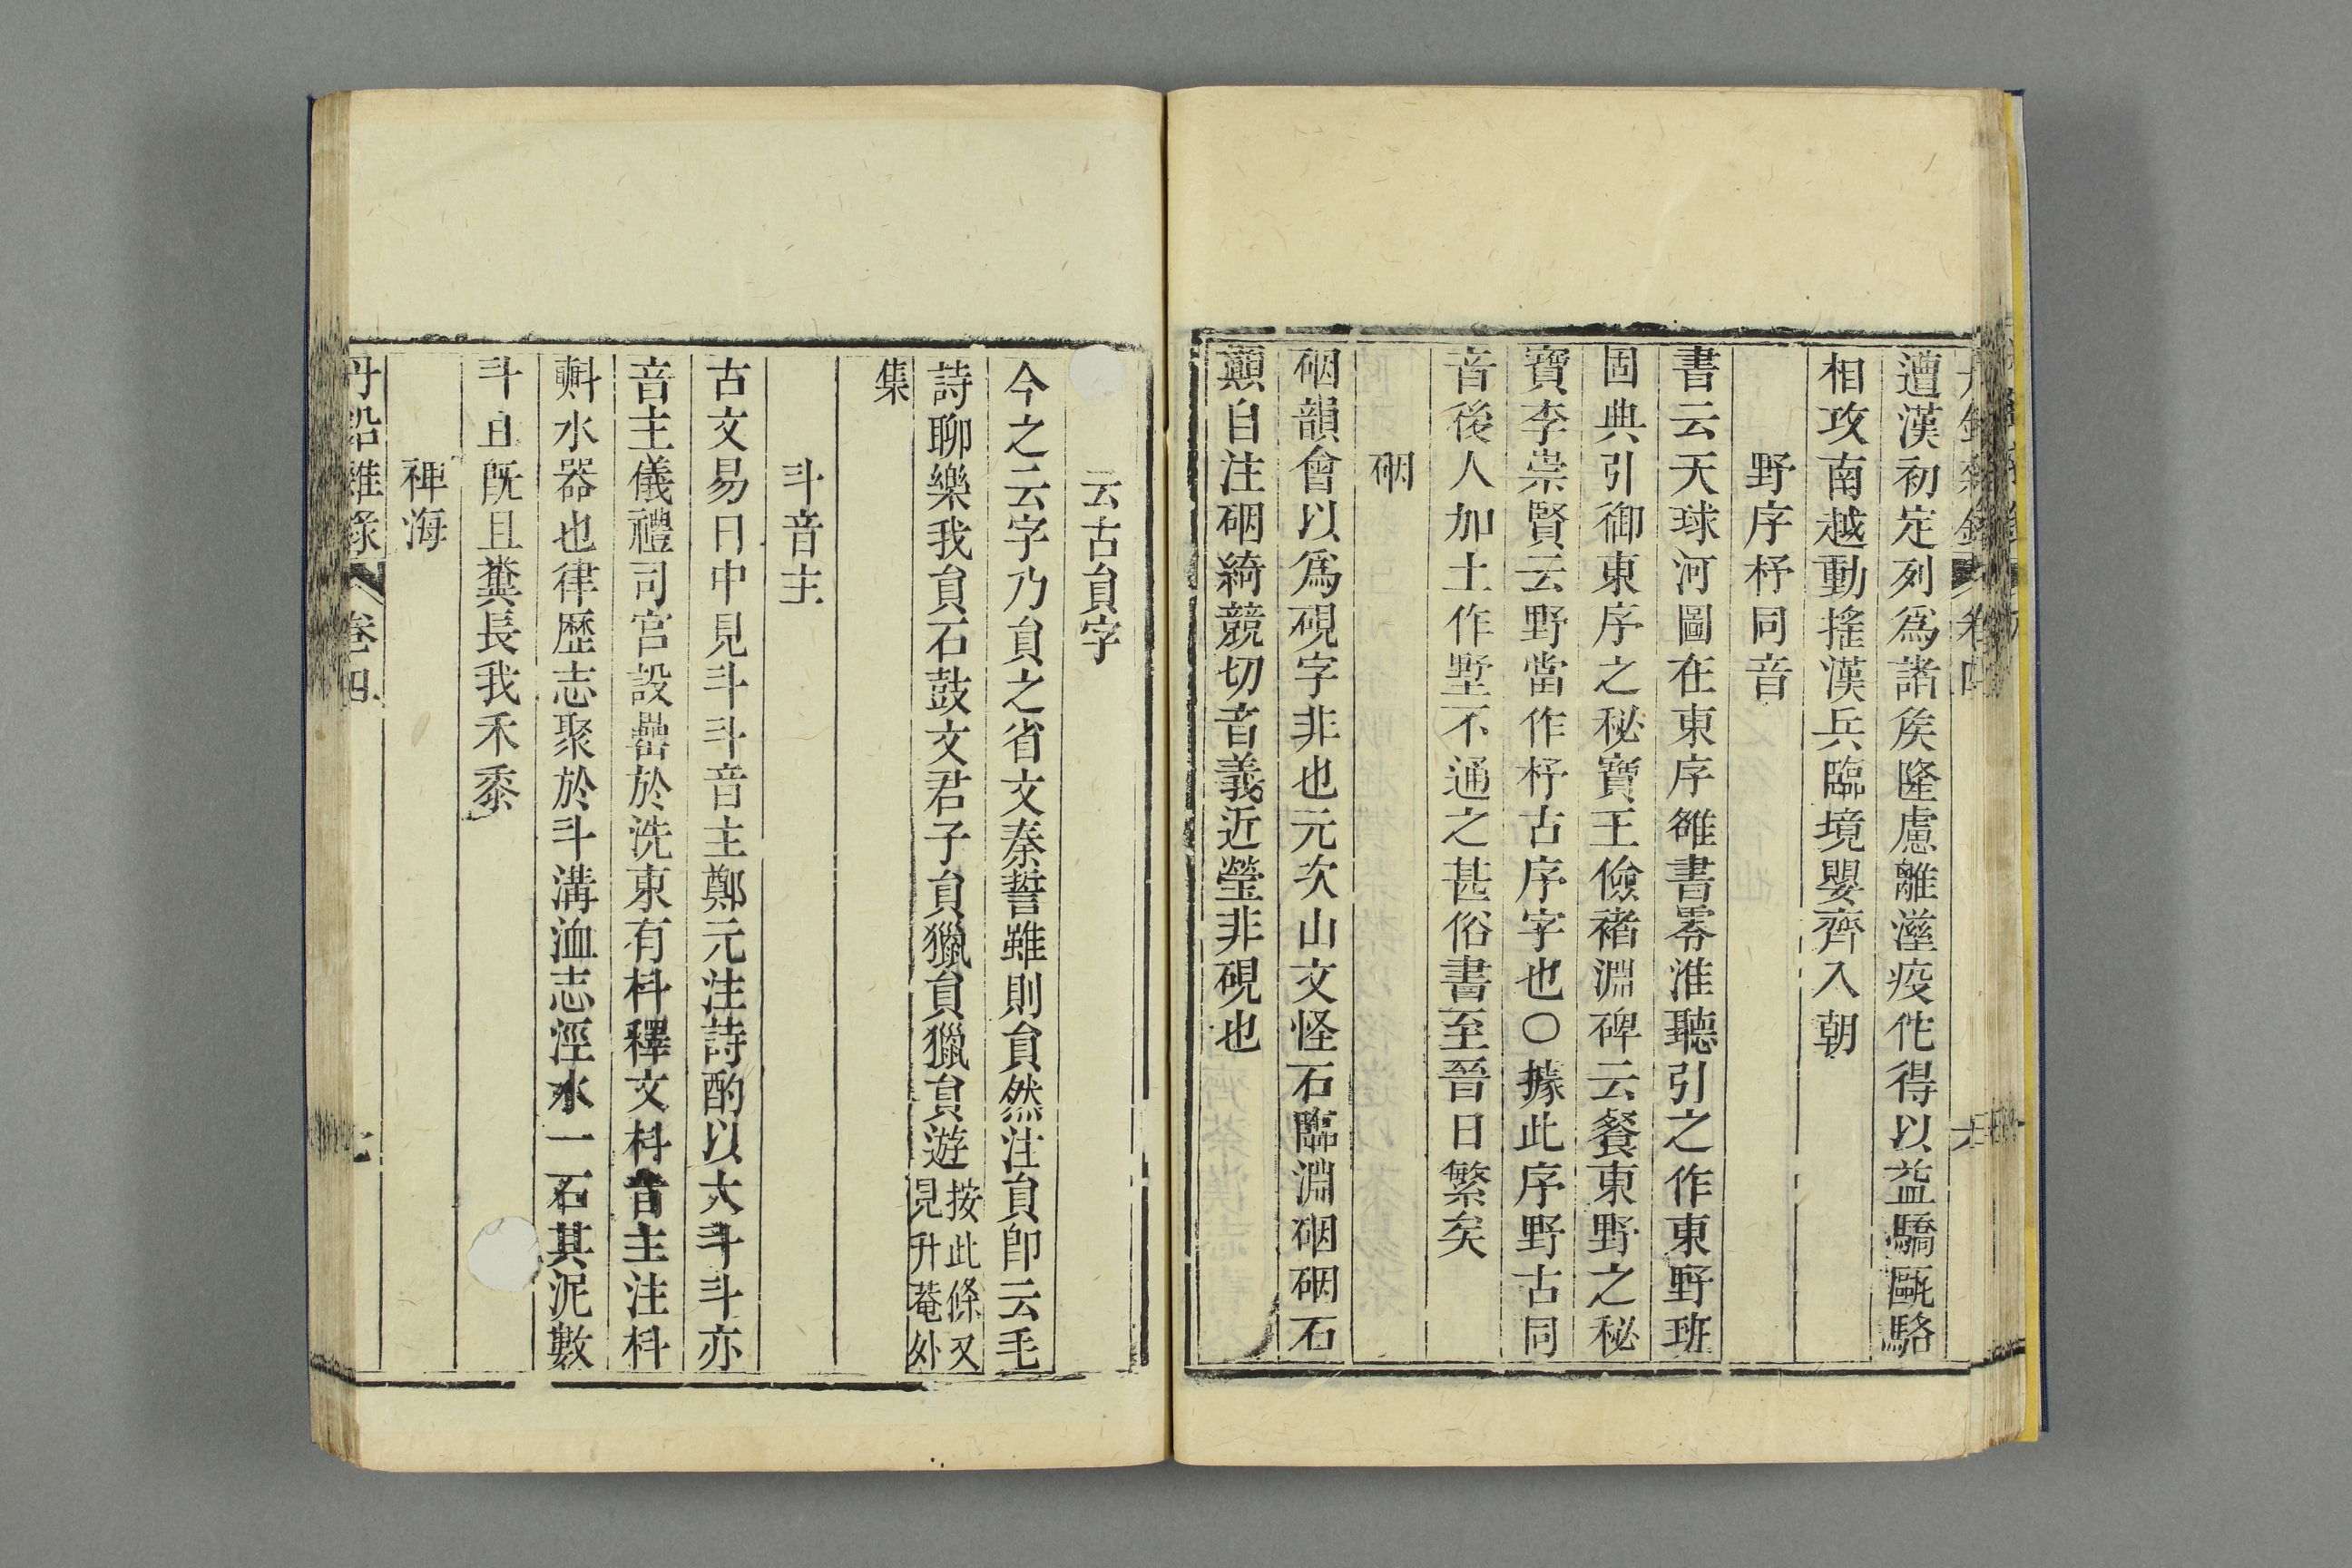 遭漢初定列爲諸矦隆慮離滋疫佗得以益驕甌駱
相攻南越動搖漢兵臨境嬰齊入朝
野序杼同音
書云天球河圖在東序雒書零淮聽引之作東野班
固典引御東序之秘寶王儉褚淵碑云餐東野之秘
寶李崇賢云野當作杼古序字也〇據此序野古同
音後人加土作墅不通之甚俗書至晉日繁矣
硱
硱韻會以爲硯字非也元次山文怪石臨淵硱硱石
顚自注硱綺競切音義近瑩非硯也
云古貟字
今之云字乃貟之省文秦誓雖則貟然注貟卽云毛
詩聊樂我貟石鼓文君子貟獵貟獵貟遊按此條又見升菴外
集
斗音主
古文易日中見斗斗音主鄭元注詩酌以大斗斗亦
音主儀禮司宮設罍於洗東有枓釋文枓音主注枓
㪺水器也律歷志聚於斗溝洫志涇水一石其泥數
斗且旣且糞長我禾黍
裨海
丹鉛雜錄 卷四 七